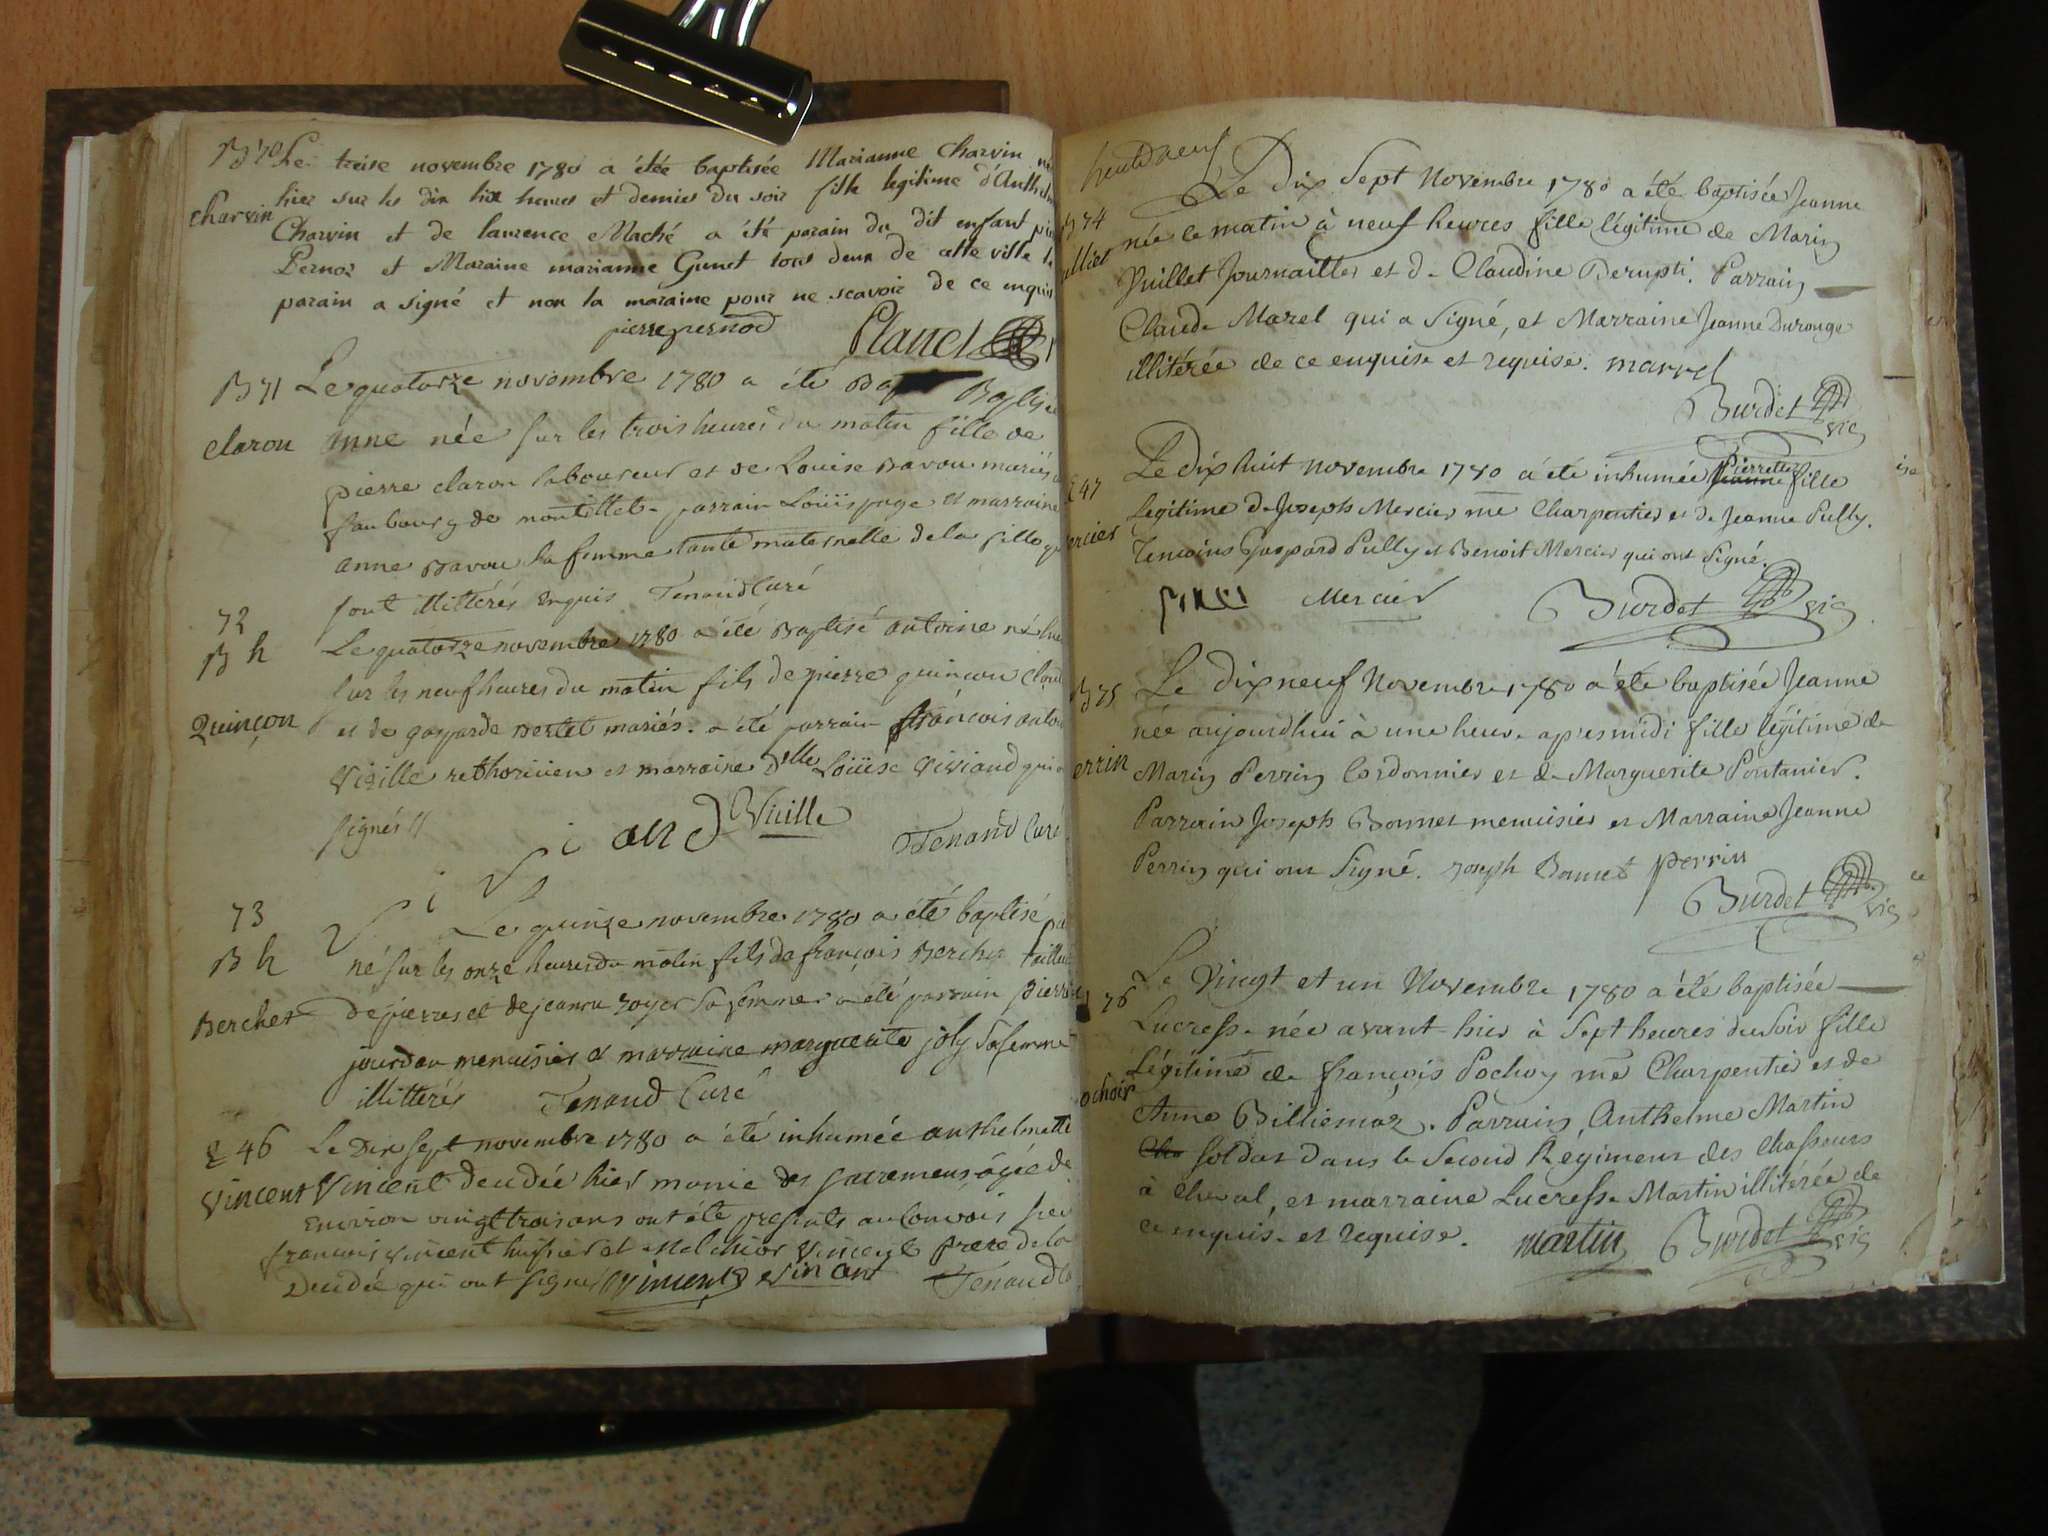 B 70 Le treise novembre 1780 a étée baptisée Marianne Charvin
hier sur les dix heures et demies du soir fille legitime d'Anthelm
charvin
Charvin et de laurence Maché a été parain du dit enfant
Pernoz et Maraine marianne Gunet tous deux de cette ville
parain a signé et non la maraine pour ne scavoir de ce enquis
pierre pernod Planet
B 71 Le quatorze novembre 1780 a été Baptisée
claron anne née sur les trois heures du matin fille de
pierre claron laboureur et de Louise Bavou mariés
faubourg de montillet parrain Loüis page et marraine
anne Bavou sa femme tante maternelle de la fille
sont illittérés enquis Tenand Curé
72
B h Le quatorze novembre 1780 a été Baptisé antoine né
sur les neuf heures du matin fils de pierre quinçon
Quinçon et de gasparde Bertet mariés. a été parrain françois
Vizille rethoricien et marraine dlle Loüise Viviand
signés //
Vizille
Tenand Curé
73
Le quinze novembre 1780 a été baptisé
B h né sur les onze heures du matin fils de françois Bercher
Bercher de pierres et de jeanne royer sa femme a été parrain pierre
jourdan menuisier et marraine marguerite joly sa femme
illittérés Tenand Curé
E 46 Le Dix sept novembre 1780 a été inhumée anthelmette
Vincent Vincent decedée hier munie des sacremens agée de
environ vingt trois ans ont été presents au convois
francois vincent huissier et Melchior Vincent frere de la
Decedée qui ont signé Vincent vincent Tenand
feuillet neuf
Le Dix Sept Novembre 1780 a été baptisée Jeanne
B 74 née ce matin à neuf heures fille légitime de Marin
Vuillet Journaillier et de Claudine Derupti. Parrain
Claude Marel qui a Signé, et Marraine Jeanne Durouge
illitérée de ce enquise et requise. marrel
Burdet vic
Le dix huit novembre 1780 a été inhumée Jeanne Pierrette fille
E 47 légitime de Joseph Mercier me Charpentier et de Jeanne Pully.
ercier Temoins Gaspard Pully et Benoit Mercier qui ont Signé.
Mercier Burdet vic
Le dix neuf Novembre 1780 a été baptisée Jeanne
B 75
née aujourdhui à une heure apres midi fille légitime de
errin Marin Perrin Cordonnier et de Marguerite Pontanier.
Parrain Joseph Bonnet menuisier et Marraine Jeanne
Perrin qui ont Signé. Joseph Bonnet perrin
Burdet vic
Le Vingt et un Novembre 1780 a été baptisée
76 Lucresse née avant-hier à Sept heures du Soir fille
Légitime de françois Pochoy me Charpentier et de
ochoir
Anne Billiemaz. Parrain, Anthelme Martin
Soldat dans le Second Régiment des Chasseurs
à cheval, et marraine Lucresse Martin illitérée de
ce enquise et requise. martin Burdet vic